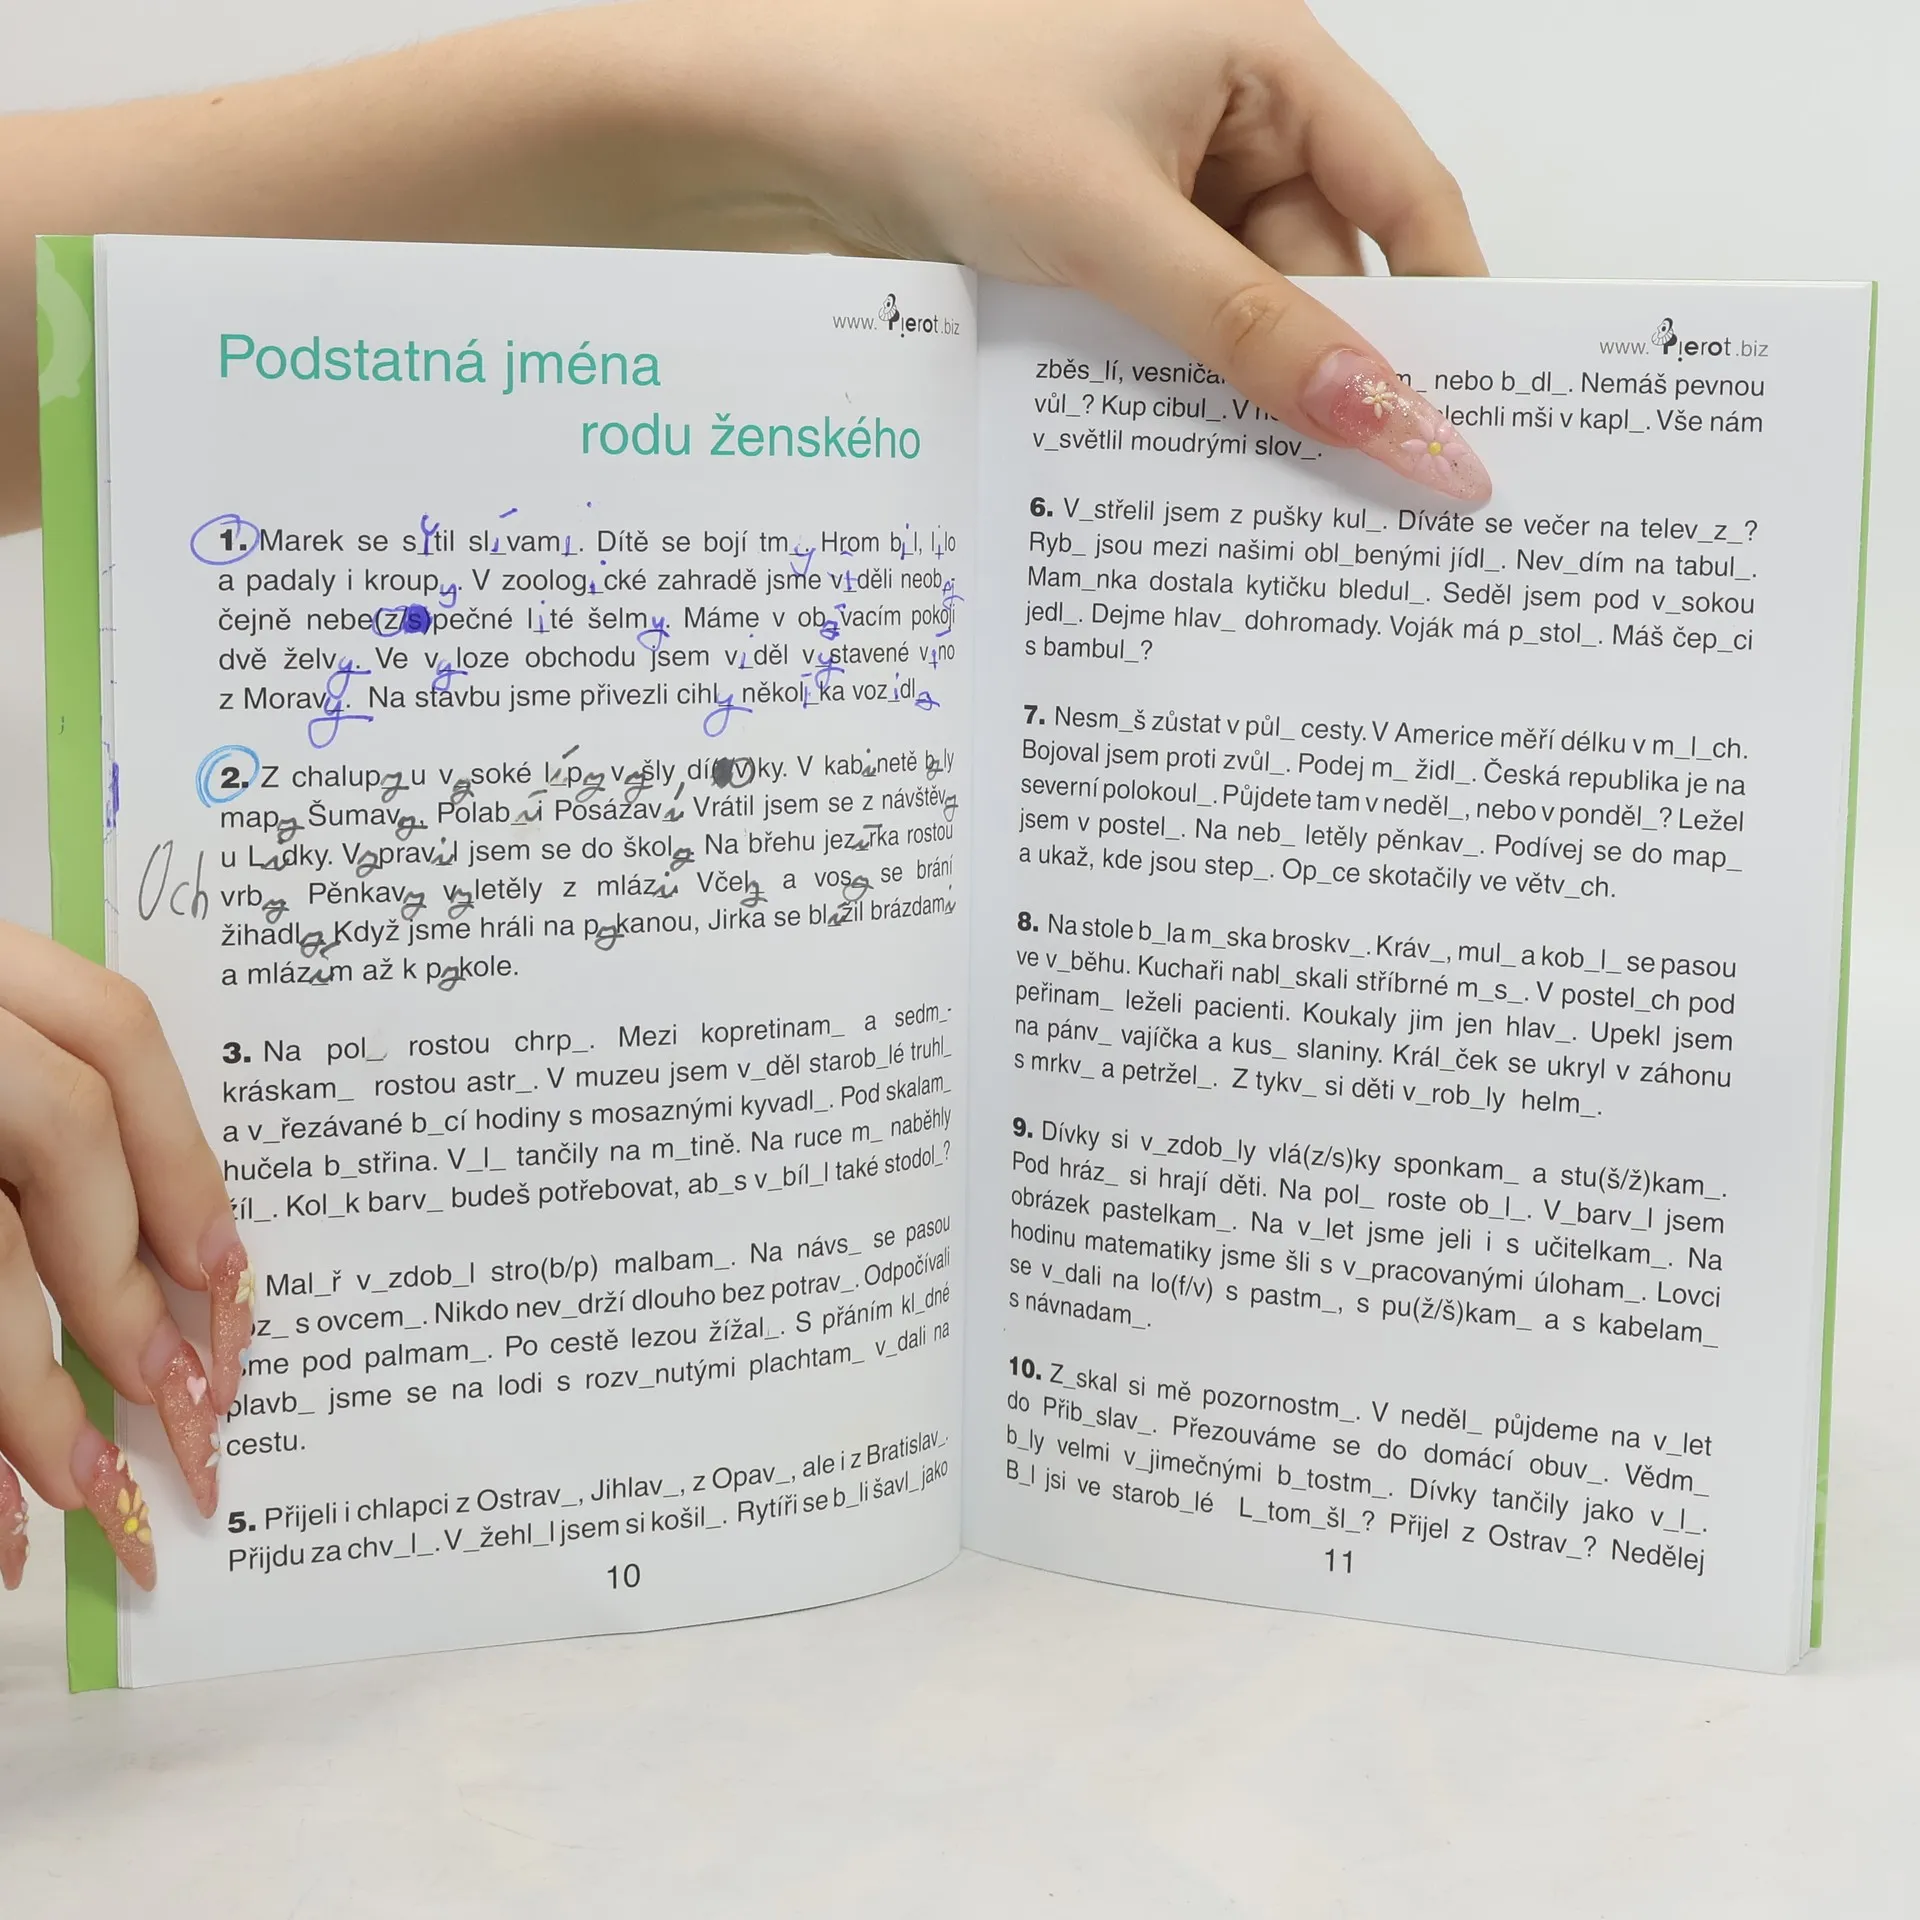 www.Pierot.biz
Podstatná jména
rodu ženského
1. Marek se sytil slívami. Dítě se bojí tmy. Hrom bil, lilo
a padaly i kroupy. V zoologické zahradě jsme viděli neoby-
čejně nebe(z/s)pečné lité šelmy. Máme v obývacím pokoji
dvě želvy. Ve výloze obchodu jsem viděl vystavené víno
z Moravy. Na stavbu jsme přivezli cihly několika vozidly
2. Z chalupy u vysoké lípy vyšly dí(v)ky. V kabinetě byly
mapy Šumavy, Polabí i Posázaví. Vrátil jsem se z návštěvy
u Lidky. Vypravil jsem se do školy. Na břehu jezírka rostou
Och
vrby. Pěnkavy vyletěly z mlází. Včely a vosy se brání
žihadly. Když jsme hráli na pykanou, Jirka se blížil brázdami
a mlázím až k pykole.
3. Na pol_ rostou chrp_. Mezi kopretinam_ a sedm_-
kráskam_ rostou astr_. V muzeu jsem v_děl starob_lé truhl_
a v_řezávané b_cí hodiny s mosaznými kyvadl_. Pod skalam_
hučela b_střina. V_l_ tančily na m_tině. Na ruce m_ naběhly
žíl_. Kol_k barv_ budeš potřebovat, ab_s v_bíl_l také stodol_?
Mal_ř v_zdob_l stro(b/p) malbam_. Na návs_ se pasou
s ovcem_. Nikdo nev_drží dlouho bez potrav_. Odpočívali
pod palmam_. Po cestě lezou žížal_. S přáním kl_dné
plavb_ jsme se na lodi s rozv_nutými plachtam_ v_dali na
cestu.
5. Přijeli i chlapci z Ostrav_, Jihlav_, z Opav_, ale i z Bratislav_.
Přijdu za chv_l_. V_žehl_l jsem si košil_. Rytíři se b_li šavl_ jako
10
www.Pierot.biz
zběs_lí, nebo b_dl_. Nemáš pevnou
vůl_? Kup cibul_. V mši v kapl_. Vše nám
v_světlil moudrými slov_.
6. V_střelil jsem z pušky kul_. Díváte se večer na telev_z_?
Ryb_ jsou mezi našimi obl_benými jídl_. Nev_dím na tabul_.
Mam_nka dostala kytičku bledul_. Seděl jsem pod v_sokou
jedl_. Dejme hlav_ dohromady. Voják má p_stol_. Máš čep_ci
s bambul_?
7. Nesm_š zůstat v půl_ cesty. V Americe měří délku v m_l_ch.
Bojoval jsem proti zvůl_. Podej m_ židl_. Česká republika je na
severní polokoul_. Půjdete tam v neděl_, nebo v ponděl_? Ležel
jsem v postel_. Na neb_ letěly pěnkav_. Podívej se do map_
a ukaž, kde jsou step_. Op_ce skotačily ve větv_ch.
8. Na stole b_la m_ska broskv_. Kráv_, mul_ a kob_l_ se pasou
ve v_běhu. Kuchaři nabl_skali stříbrné m_s_. V postel_ch pod
peřinam_ leželi pacienti. Koukaly jim jen hlav_. Upekl jsem
na pánv_ vajíčka a kus_ slaniny. Král_ček se ukryl v záhonu
s mrkv_ a petržel_. Z tykv_ si děti v_rob_ly helm_.
9. Dívky si v_zdob_ly vlá(z/s)ky sponkam_ a stu(š/ž)kam_.
Pod hráz_ si hrají děti. Na pol_ roste ob_l_. V_barv_l jsem
obrázek pastelkam_. Na v_let jsme jeli i s učitelkam_. Na
hodinu matematiky jsme šli s v_pracovanými úloham_. Lovci
se v_dali na lo(f/v) s pastm_, s pu(ž/š)kam_ a s kabelam_
s návnadam_.
10. Z_skal si mě pozornostm_. V neděl_ půjdeme na v_let
do Přib_slav_. Přezouváme se do domácí obuv_. Vědm_
b_ly velmi v_jimečnými b_tostm_. Dívky tančily jako v_l_.
B_l jsi ve starob_lé L_tom_šl_? Přijel z Ostrav_? Nedělej
11